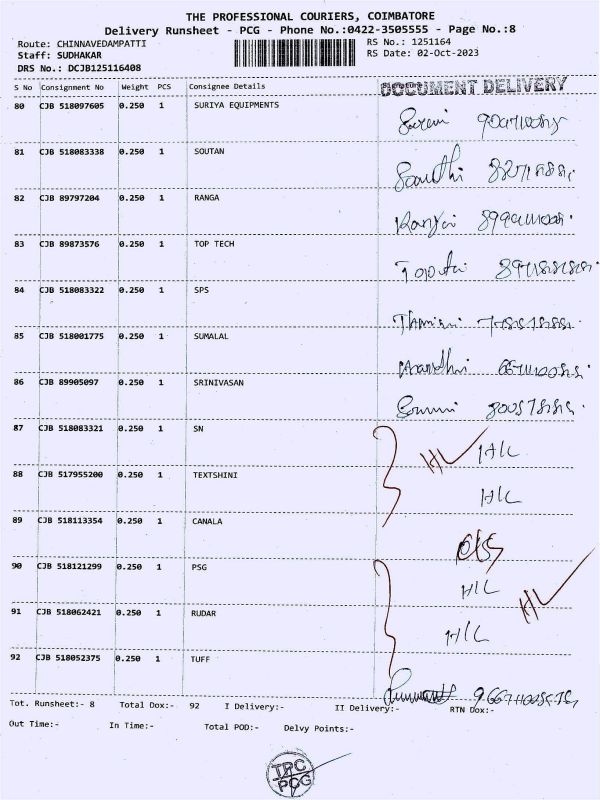 THE PROFESSIONAL COURIERS, COIMBATORE
Delivery Runsheet - PCG - Phone No.:0422-3505555 - Page No.:8
Route: CHINNAVEDAMPATTI RS No.: 1251164
Staff: SUDHAKAR RS Date: 02-Oct-2023
DRS No.: DCJB125116408
S No Consignment No Weight PCS Consignee Details DOCUMENT DELIVERY
80 CJB 518097605 0.250 1 SURIYA EQUIPMENTS
81 CJB 518083338 0.250 1 SOUTAN
82 CJB 89797204 0.250 1 RANGA
83 CJB 89873576 0.250 1 TOP TECH
84 CJB 518083322 0.250 1 SPS
85 CJB 518001775 0.250 1 SUMALAL
86 CJB 89905097 0.250 1 SRINIVASAN
87 CJB 518083321 0.250 1 SN
H/L H/L
88 CJB 517955200 0.250 1 TEXTSHINI
H/L
89 CJB 518113354 0.250 1 CANALA
90 CJB 518121299 0.250 1 PSG
H/L H/L
91 CJB 518062421 0.250 1 RUDAR
H/L
92 CJB 518052375 0.250 1 TUFF
Tot. Runsheet:- 8 Total Dox:- 92 I Delivery:- II Delivery:- RTN Dox:-
Out Time:- In Time:- Total POD:- Delvy Points:-
TPC
PCG